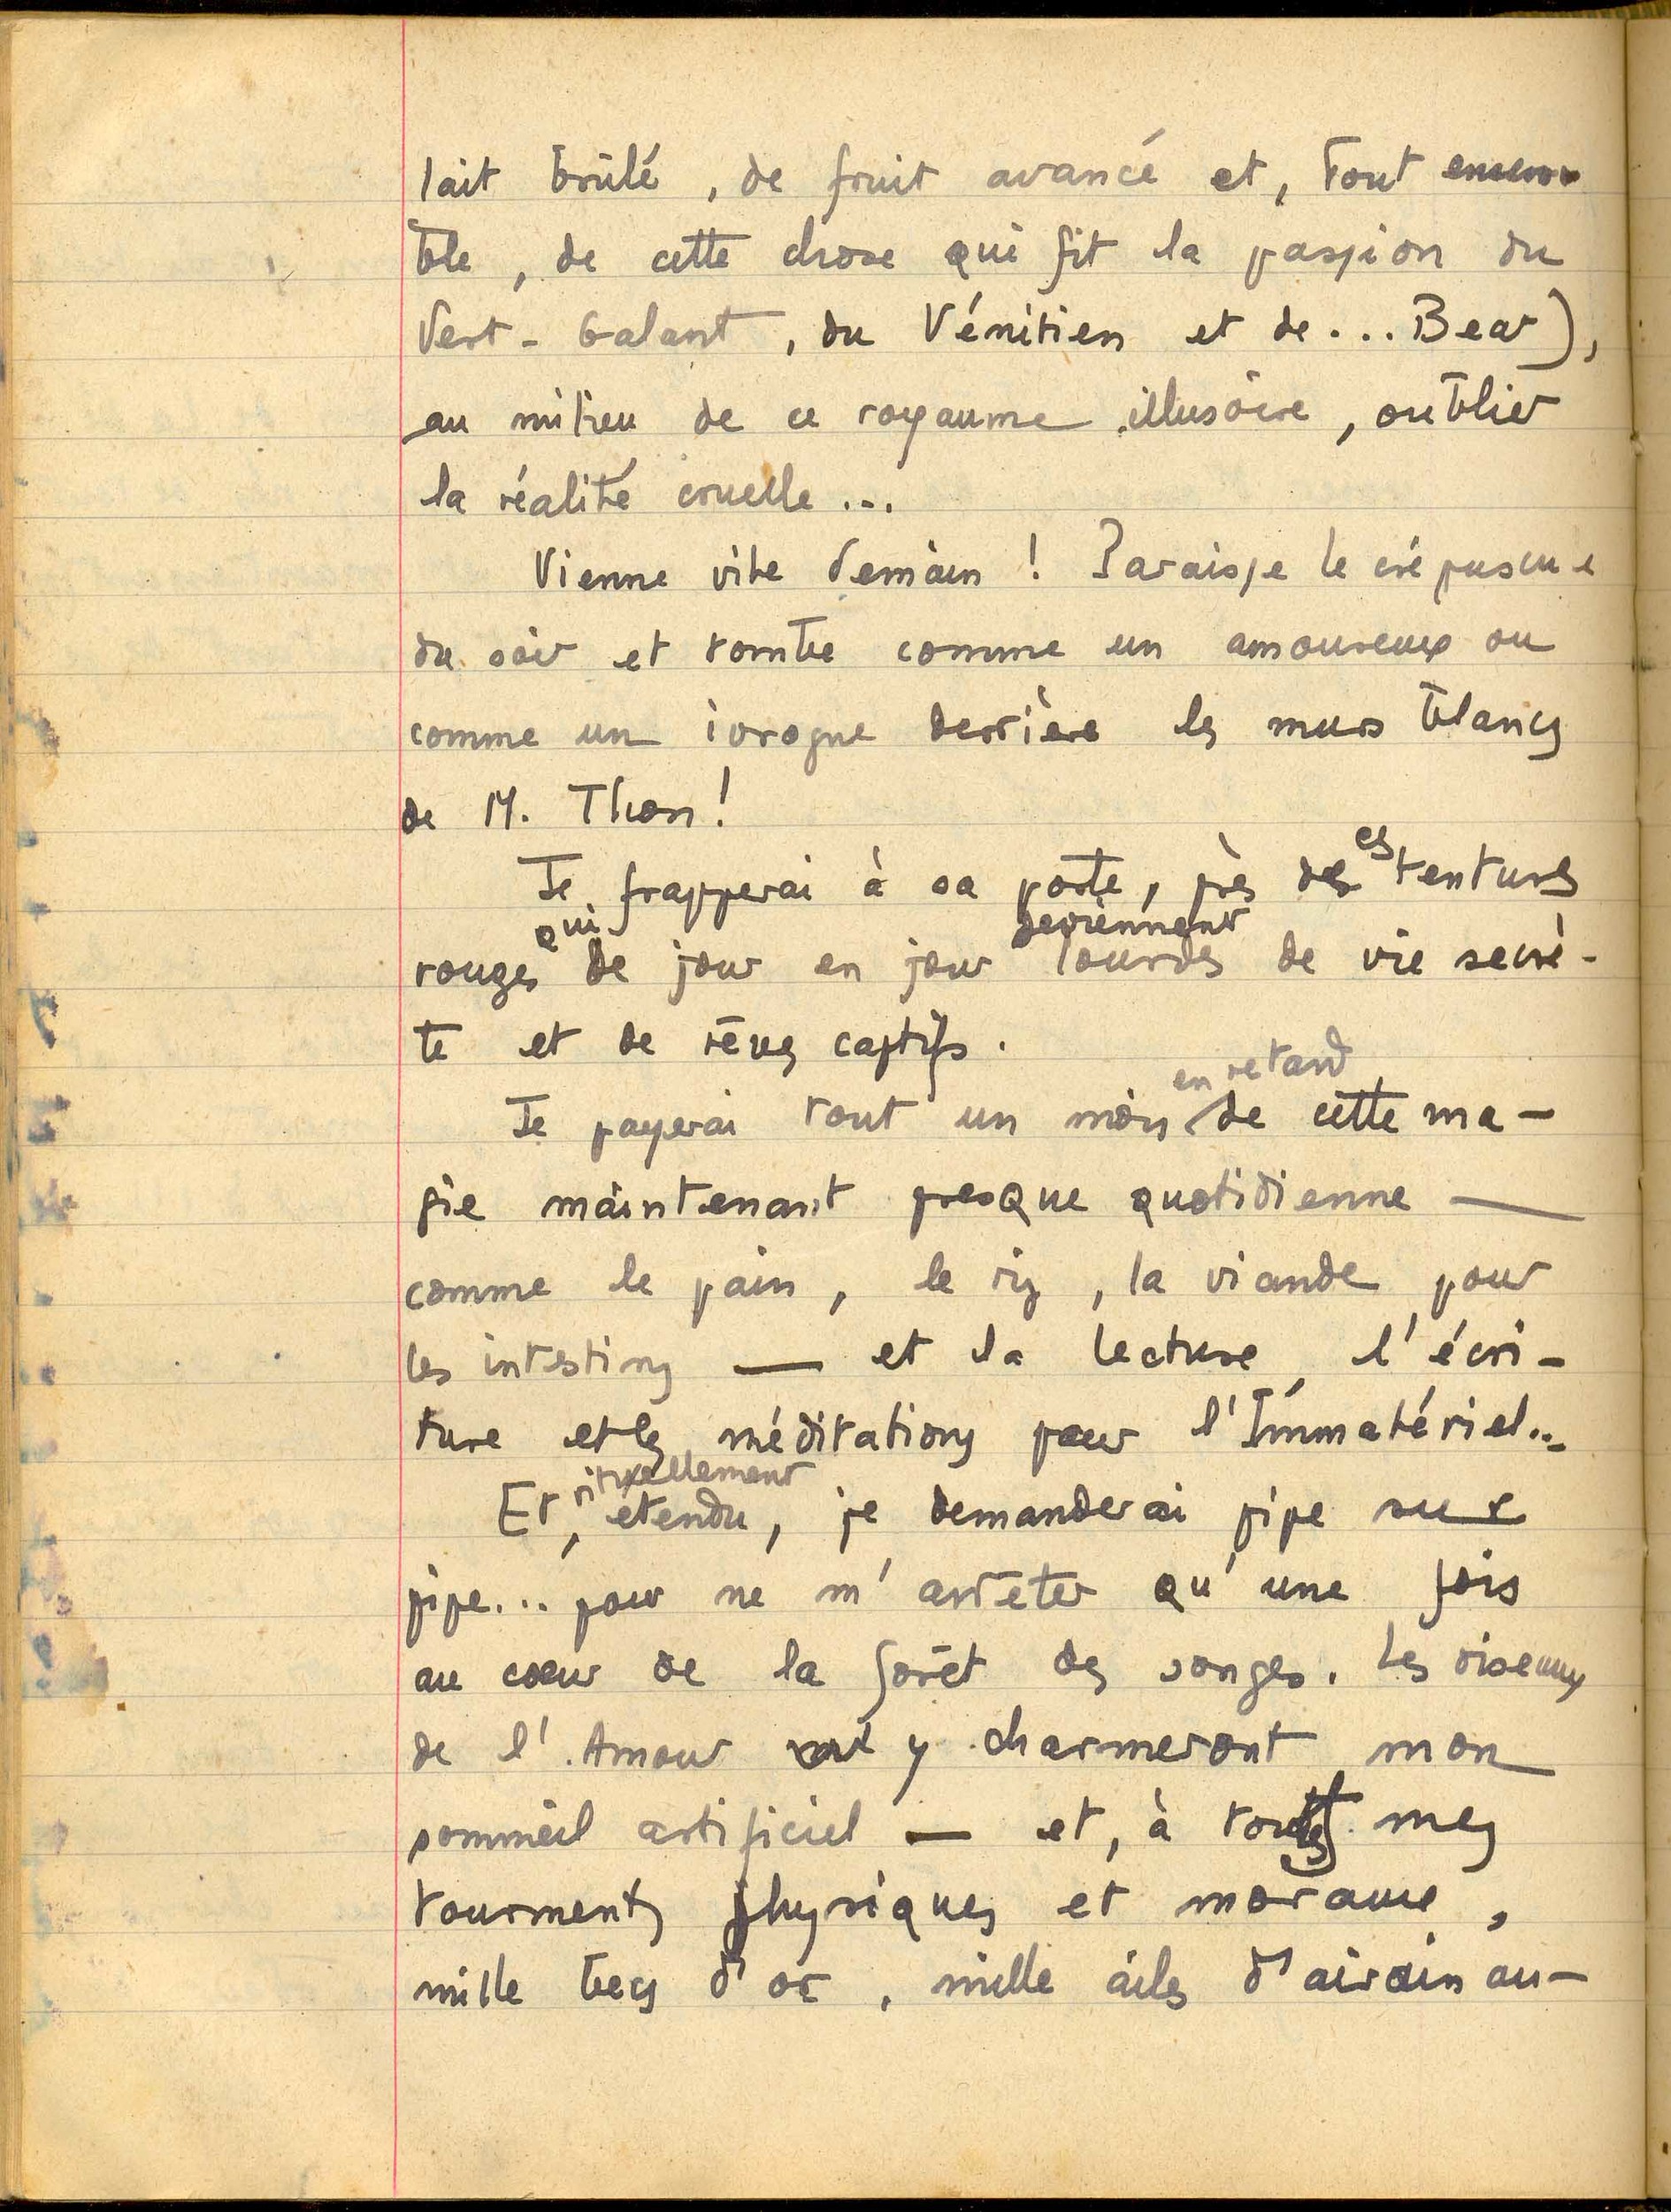 lait brûlé, de fruit avancé et, tout ensem
ble, de cette chose qui fit la passion du
Vert-Galant, du Vénitien et de... Bear),
au milieu de ce royaume illusoire, oublier
la réalité cruelle...
Vienne vite demain ! Paraisse le crépuscule
du soir et tombe comme un amoureux ou
comme un ivrogne derrière les murs blancs
de M. Thon !
es
Je frapperai à sa porte, près des tentures
qui deviennent
rouges de jour en jour lourdes de vie secrè-
te et de rêves captifs.
en retard
Je payerai tout un mois de cette ma-
gie maintenant presque quotidienne —
comme le pain, le riz, la viande pour
les intestins — et la lecture, l'écri-
ture et les méditations pour l'Immatériel...
rituellement
Et, étendu, je demanderai pipe sur
pipe... pour ne m'arrêter qu'une fois
au cœur de la forêt des songes. Les oiseaux
de l'Amour y charmeront mon
sommeil artificiel — et, à tous mes
tourments physiques et moraux,
mille becs d'or, mille ailes d'airain au-